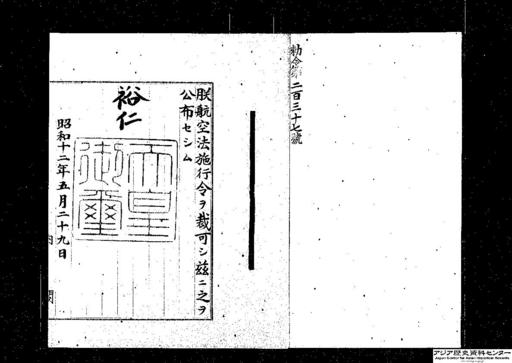 勅令第二百三十七號
朕航空法施行令ヲ裁可シ茲ニ之ヲ
公布セシム
裕仁
天皇
御璽
昭和十二年五月二十九日
内閣
アジア歴史資料センター
Japan Center for Asian Historical Records